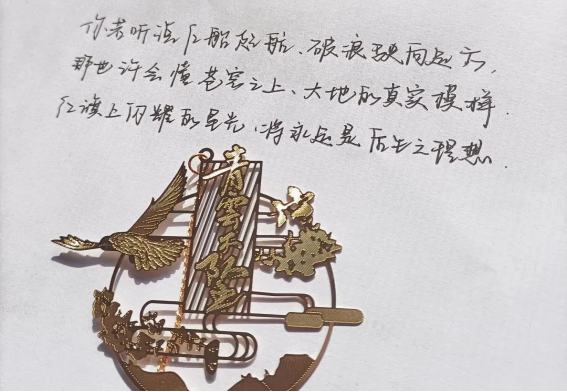 你若听过红船起航、破浪驶向远方，
那也许会懂苍穹之上、大地的真实模样.
红旗上闪耀的星光，将永远是后生之理想.
青雲不坠